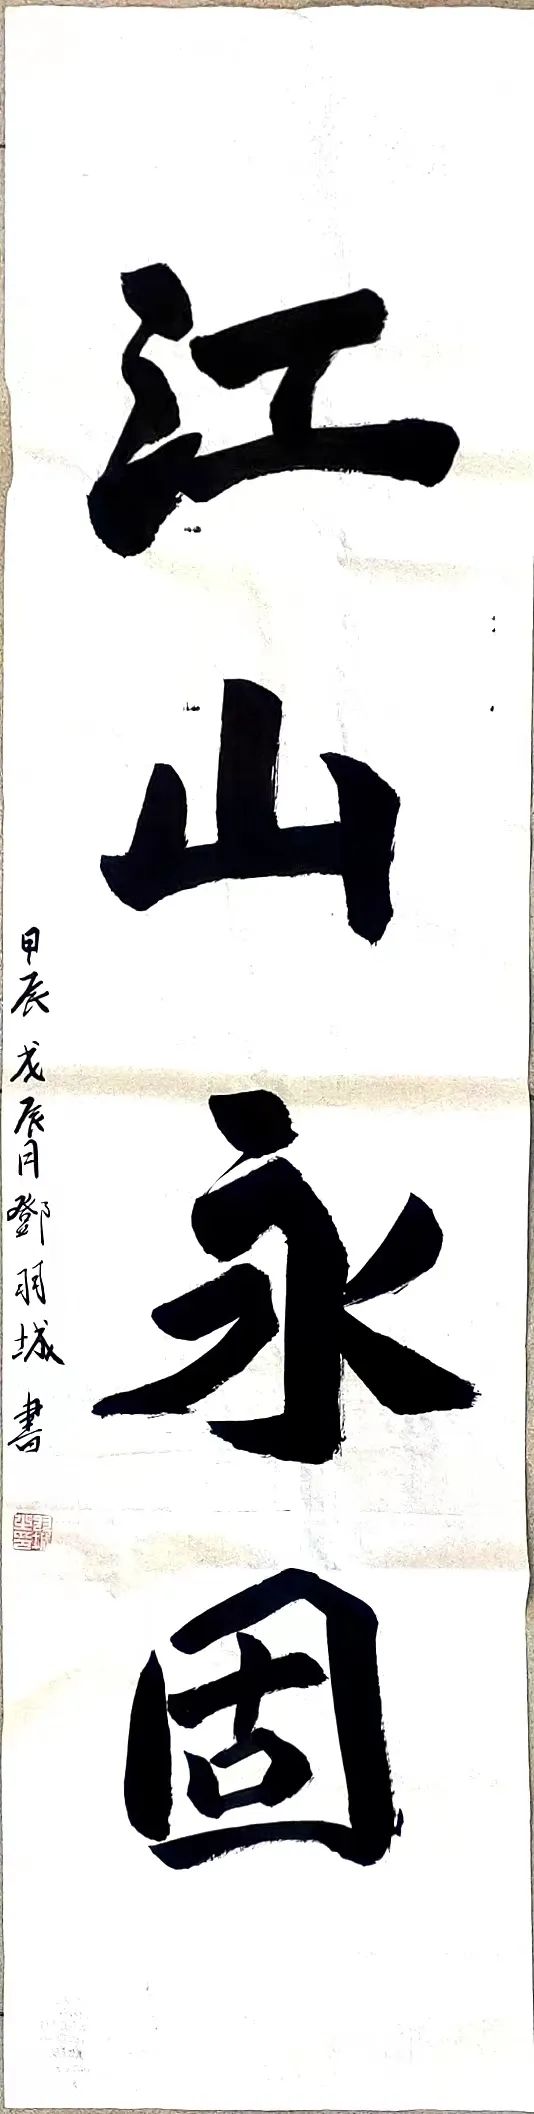 江山永固
甲辰戊辰月鄧羽城書